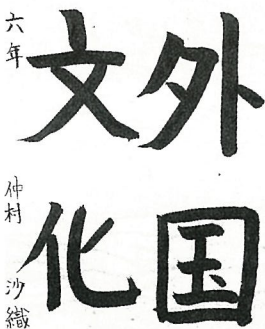 外国
文化
六年 仲村 沙織